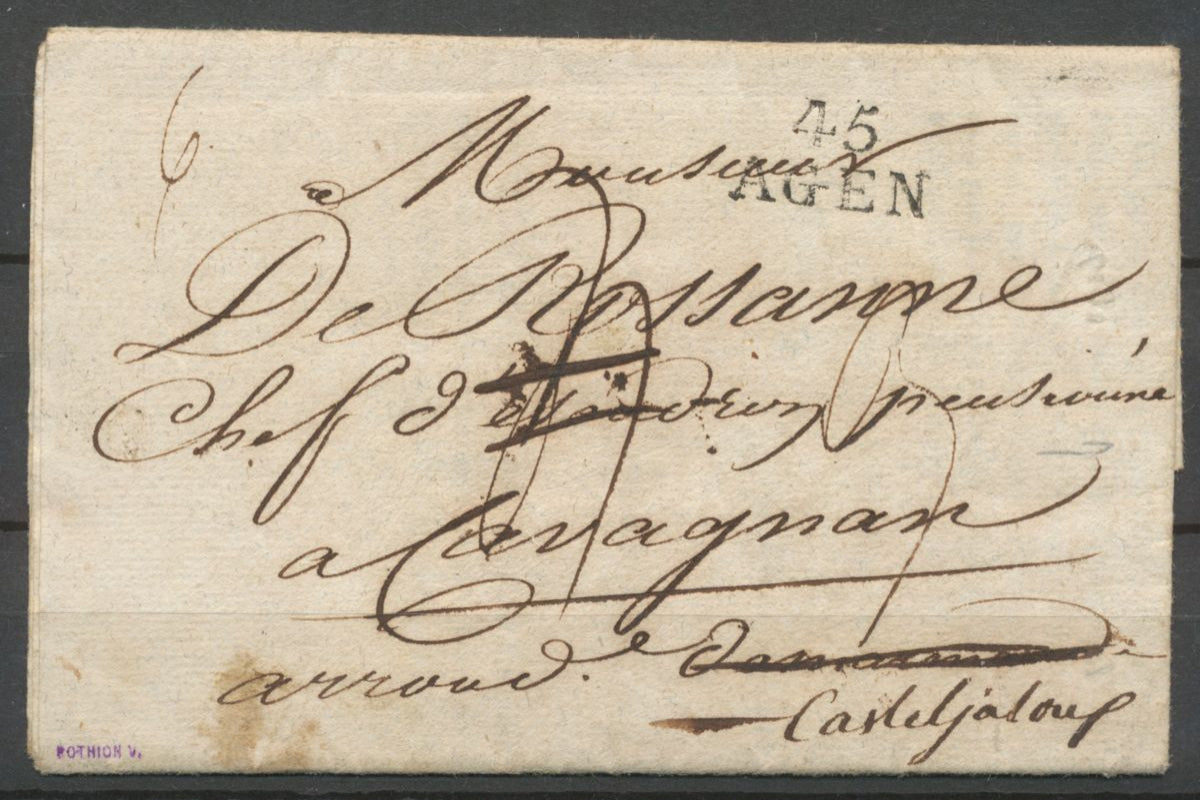 45
AGEN
a Monsieur
De Rossanne
Chef d'escadron pensionné
a Cavagnan
arrond.
Casteljaloux
POTHION V.